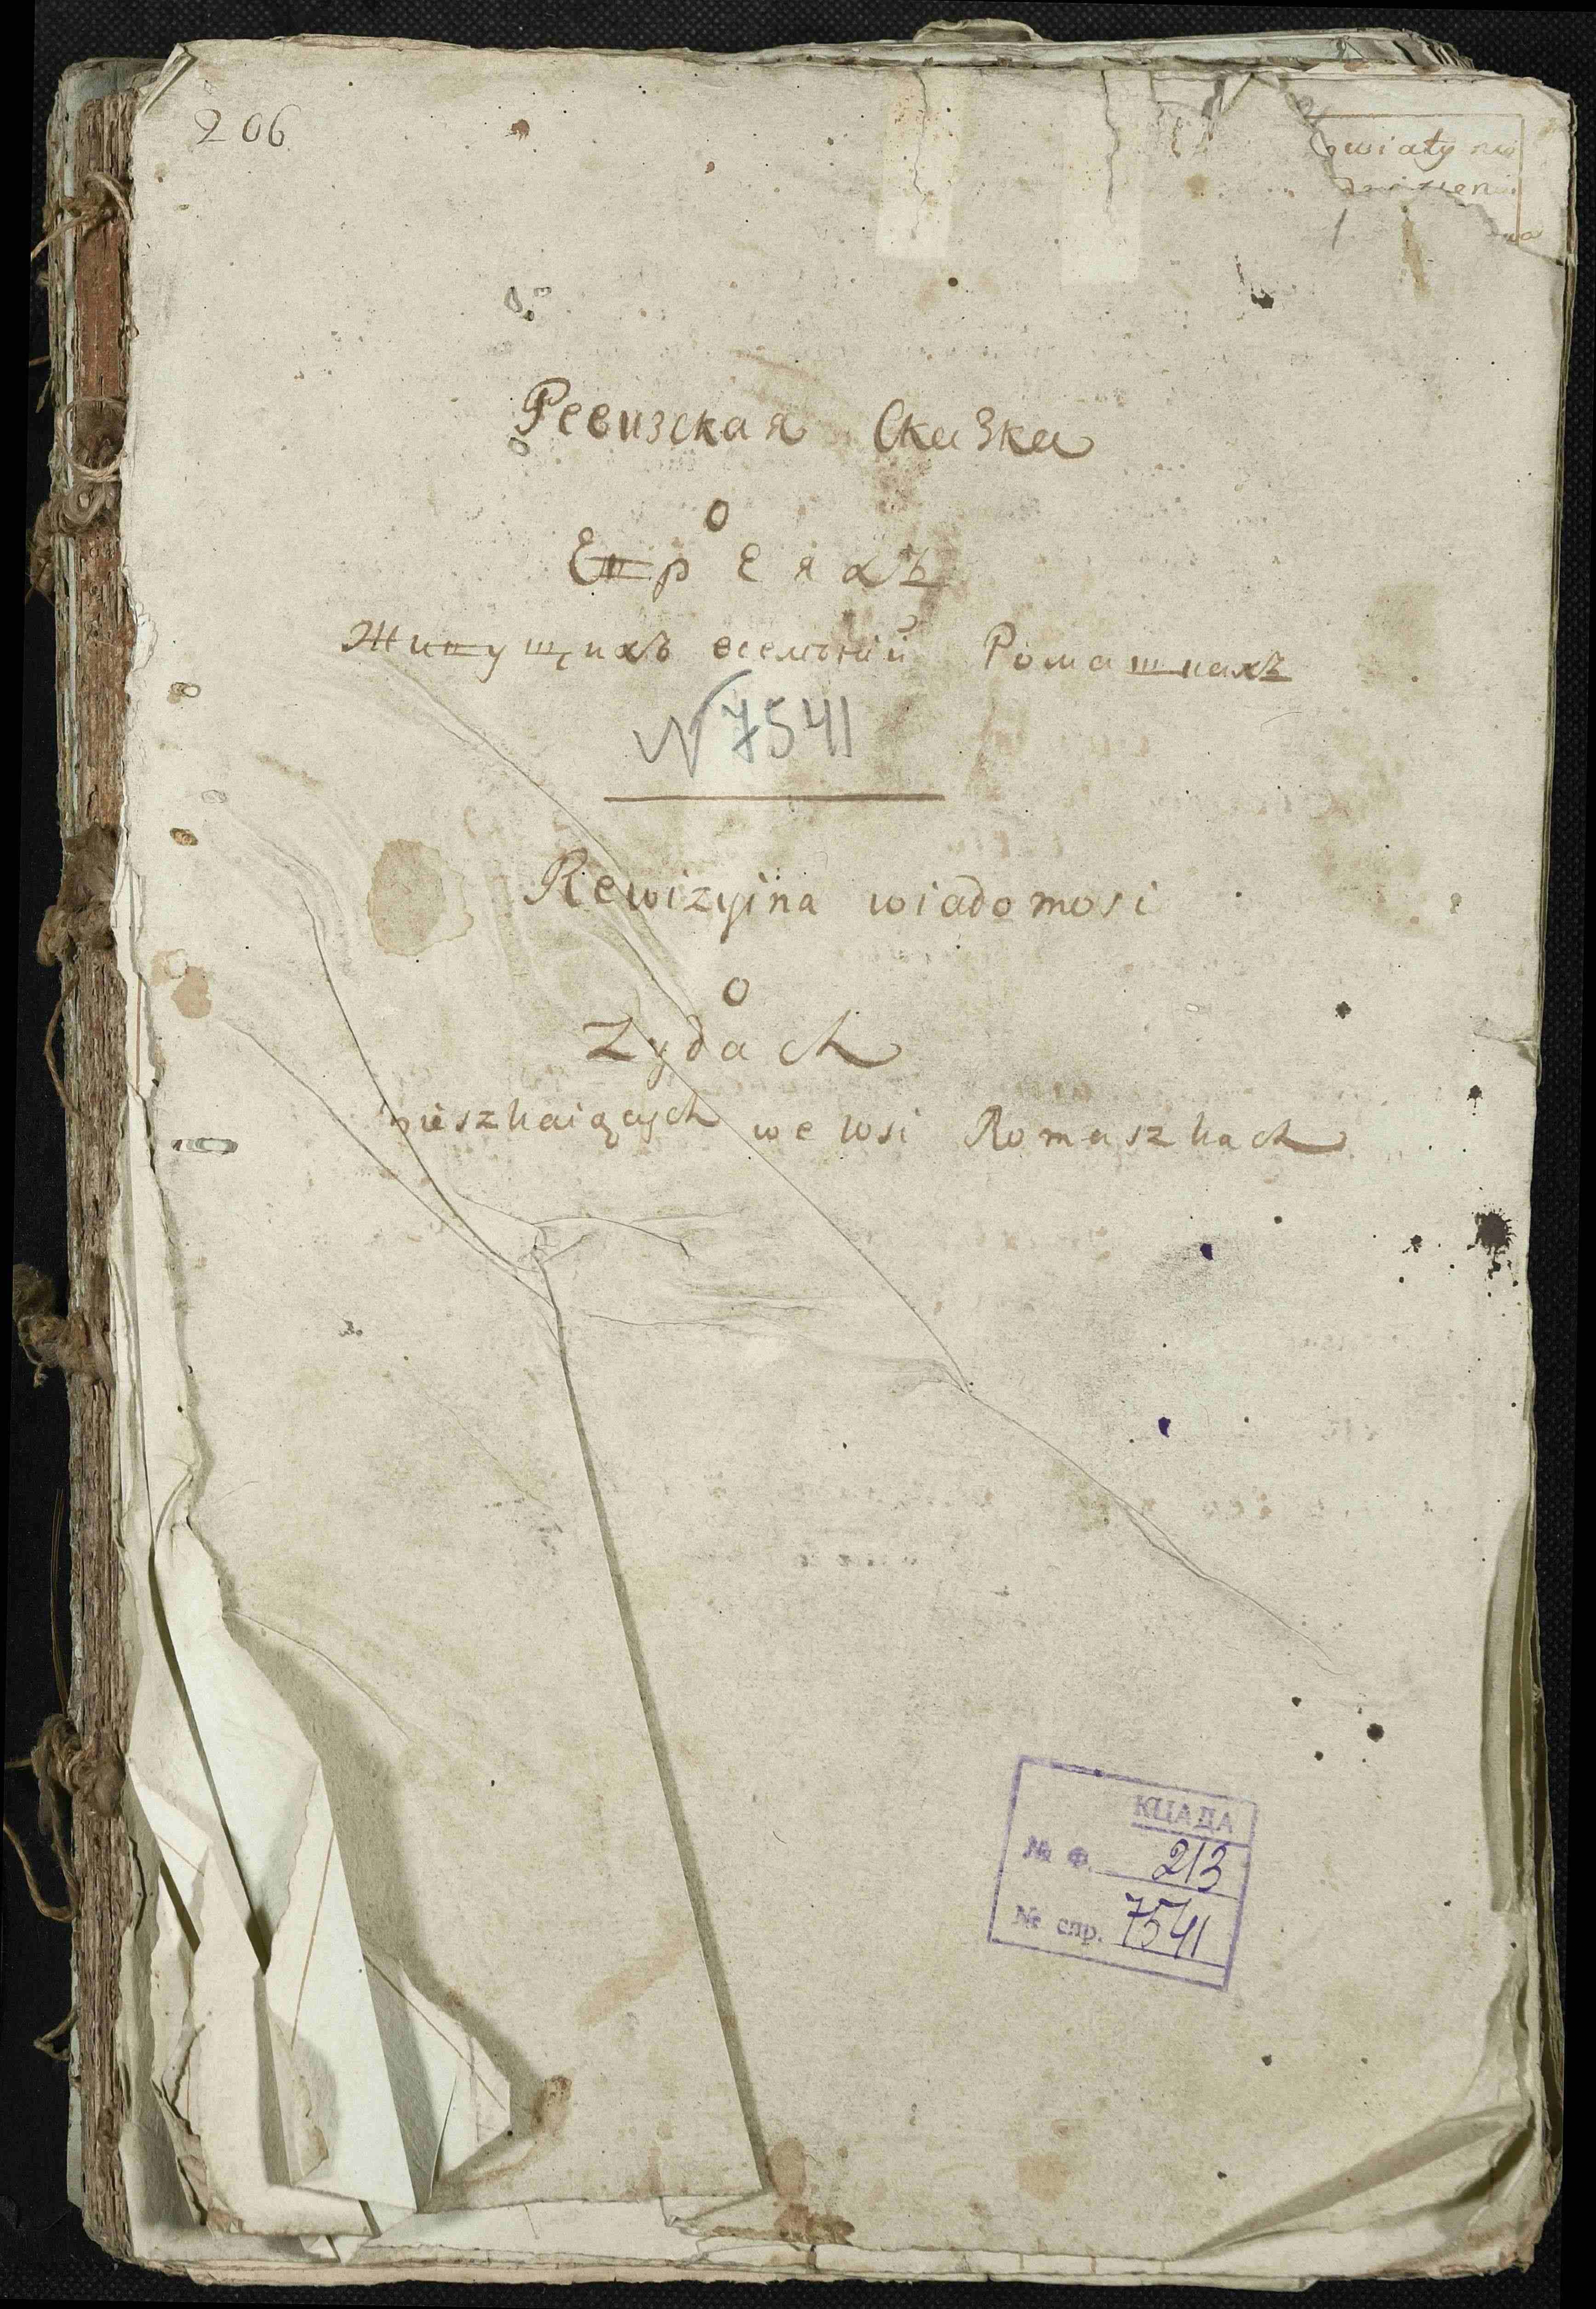 206
wiaty
1
Ревизская Сказка
о
Евреяхъ
Живущихъ Ромашкахъ
№ 7541
Rewizyina wiadomosi
o
Zydach
mieszkaiących we Wsi Romaszkach
КЦАДА
№ ф. 213
№ спр. 7541